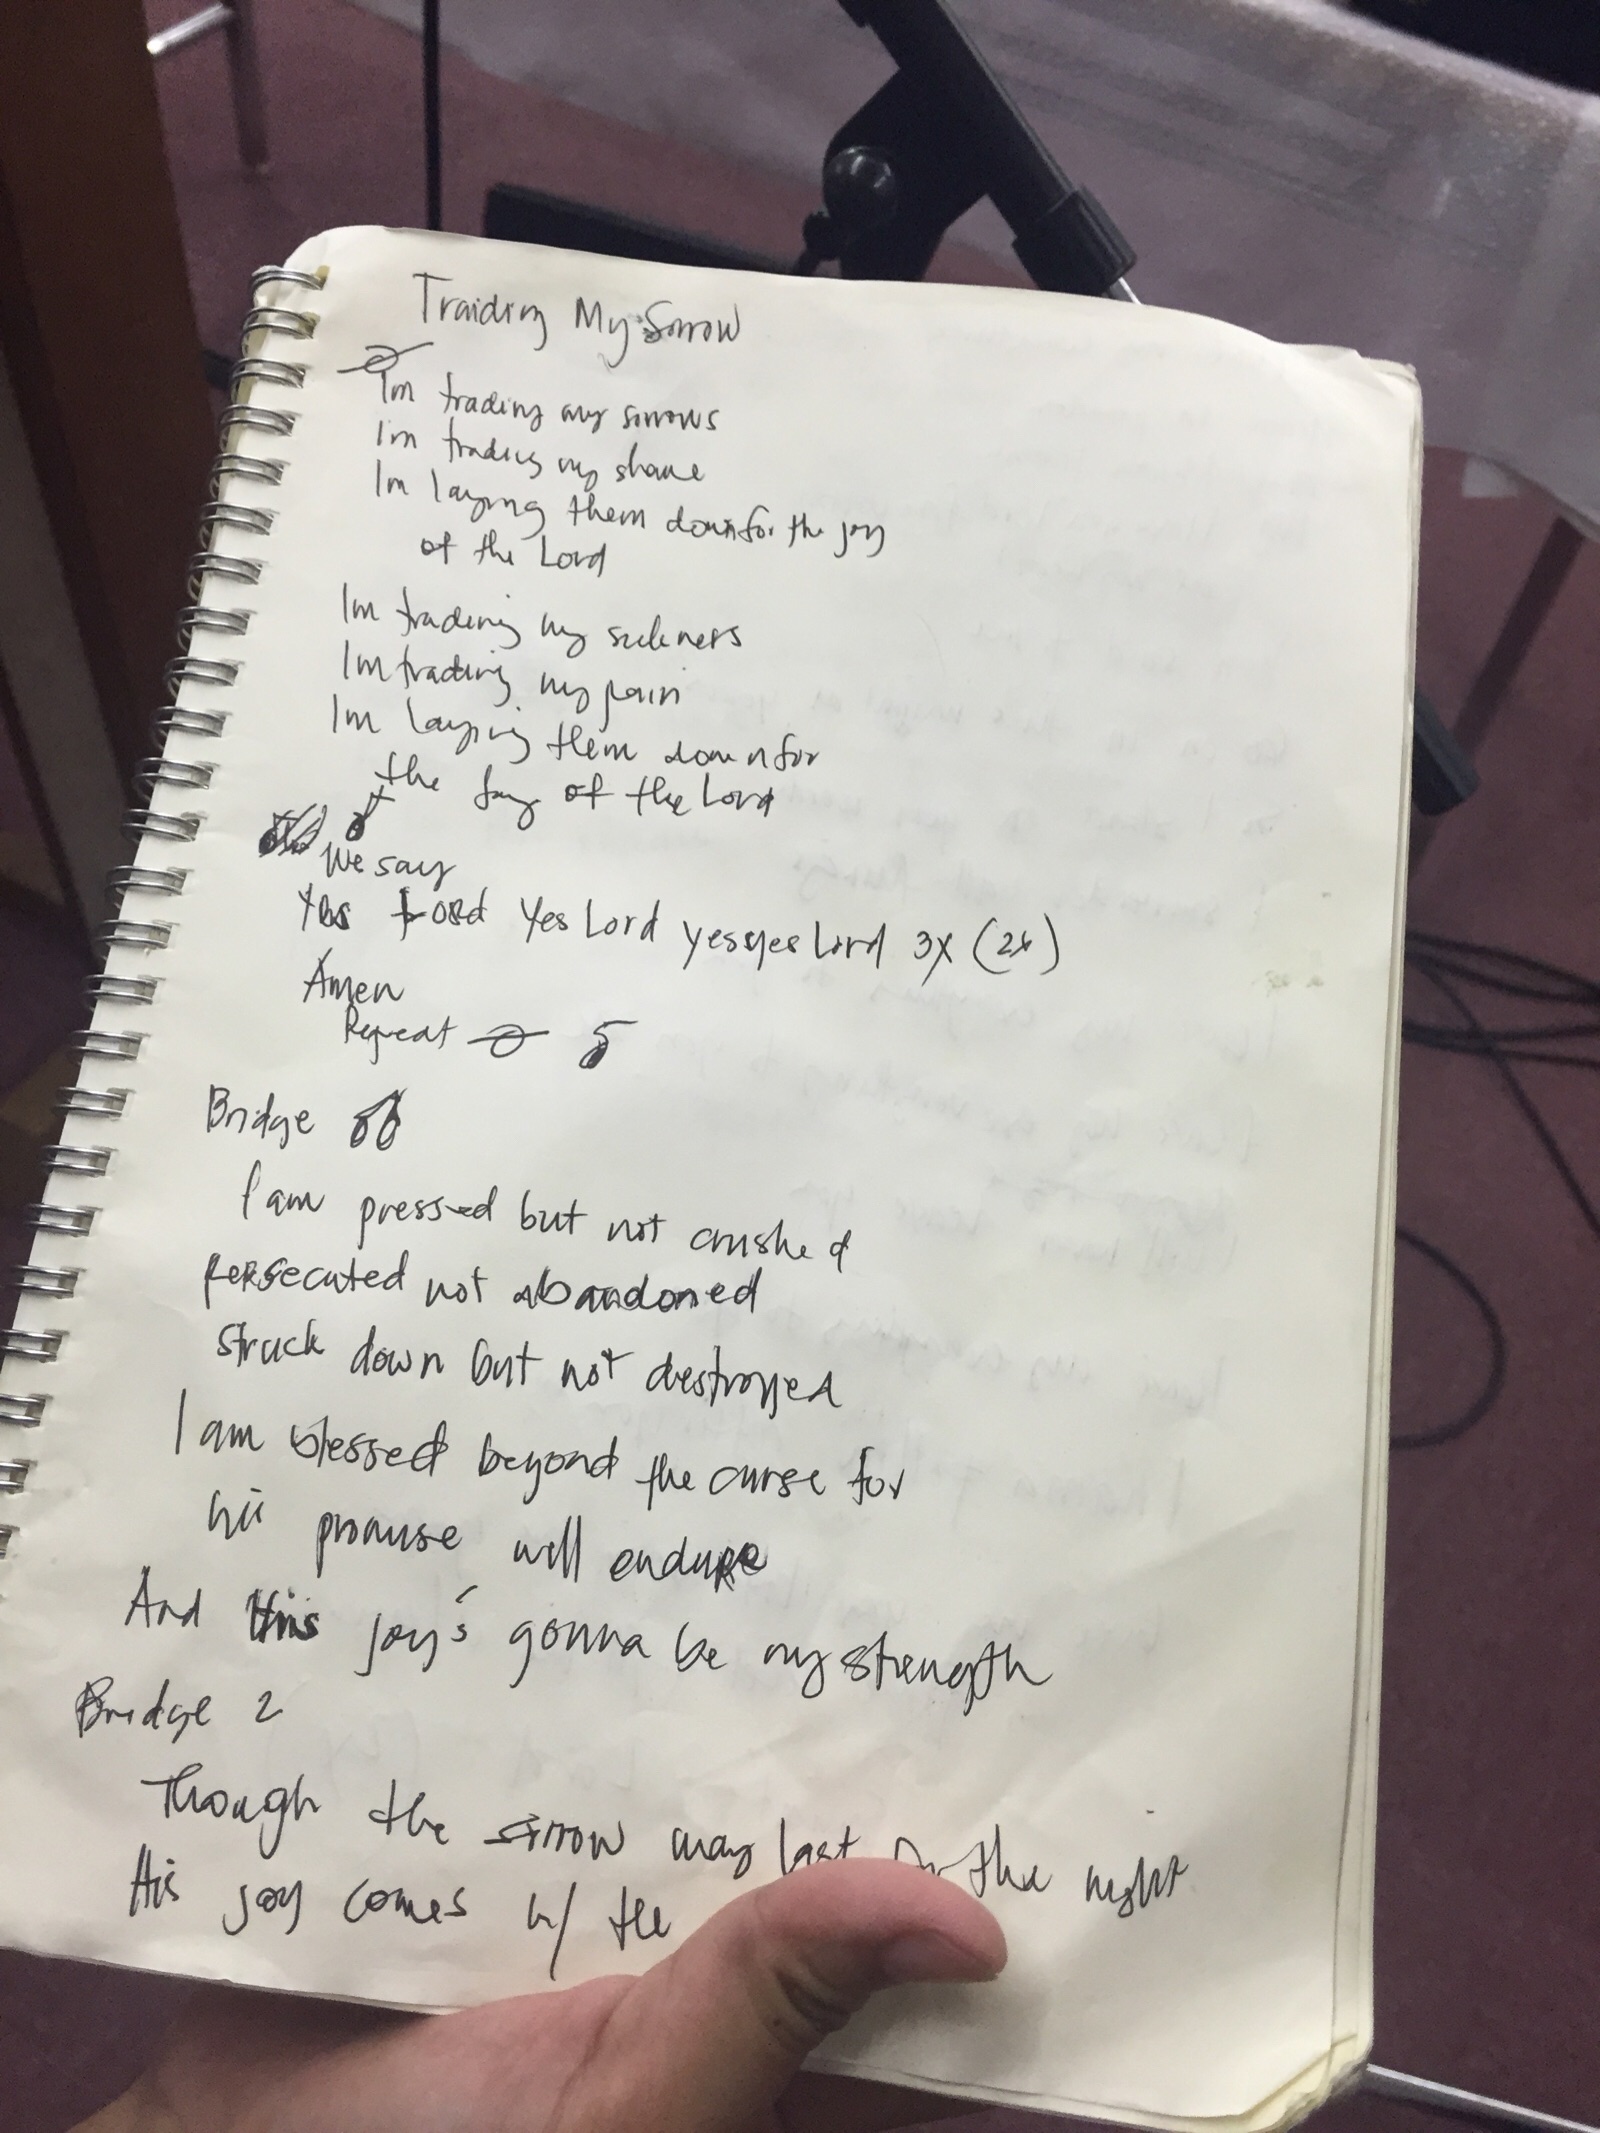 Traiding My Sorrow
Im trading my sorrows
I'm trading my shame
Im laying them down for the joy
of the Lord
Im trading my sickness
Im trading my pain
Im laying them down for
the joy of the Lord
We say
Yes Lord Yes Lord yes yes Lord 3x (2x)
Amen
Repeat
Bridge
I am pressed but not crushed
persecuted not abandoned
struck down but not destroyed
I am blessed beyond the curse for
his promise will endure
And this joy's gonna be my strength
Bridge 2
Though the sorrow may last the night
His joy comes w/ the